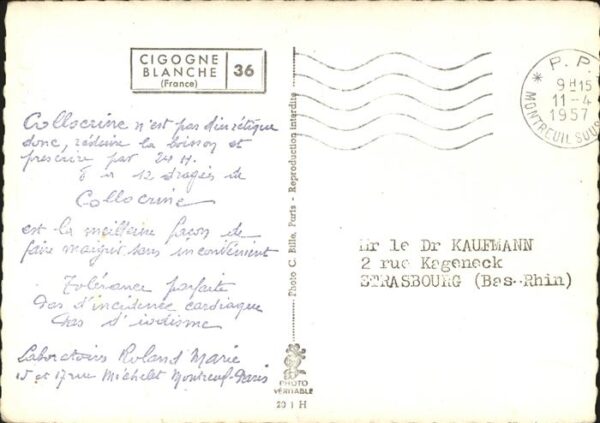 CIGOGNE
BLANCHE
(France)
36
Collocrine n'est pas diurétique
donc, réduire la boisson et
prescrire par 24 H.
8 à 12 dragées de
Collocrine
est la meilleure façon de
faire maigrir sans inconvénient
Tolérance parfaite
Pas d'incidence cardiaque
Pas d'iodisme
Laboratoires Roland Marie
15 et 17 rue Michelet Montreuil-Paris
Photo C. Bille, Paris - Reproduction interdite
PHOTO
VÉRITABLE
20 1 H
* P.P.
9H15
11-4
1957
MONTREUIL SOUS
Mr le Dr KAUFMANN
2 rue Kageneck
STRASBOURG (Bas-Rhin)